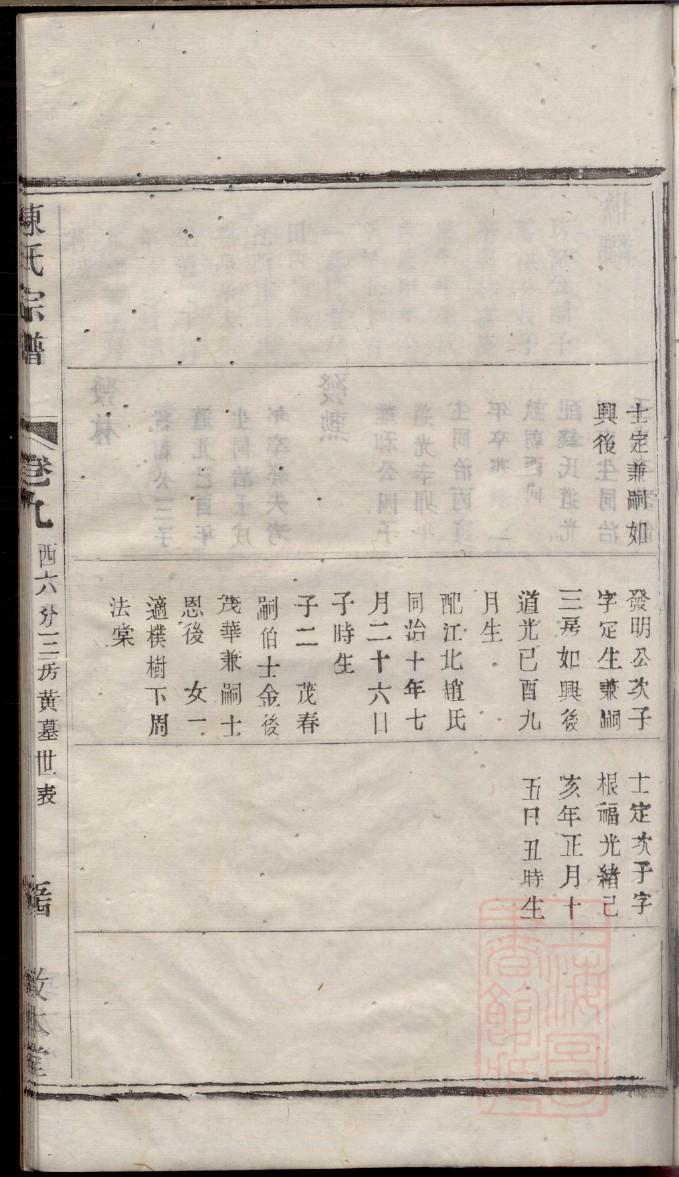 士定兼嗣如
興後
發明公次子
字定生兼嗣
三房如興後
道光己酉九
月生
配江北趙氏
同治十年七
月二十六日
子時生
子二　茂春
嗣伯士金後
茂華兼嗣士
恩後　女一
適樸樹下周
法棠
士定次子字
根福光緒己
亥年正月十
五日丑時生
陳氏宗譜
卷九
西六分三房黃墓世表
敦本堂